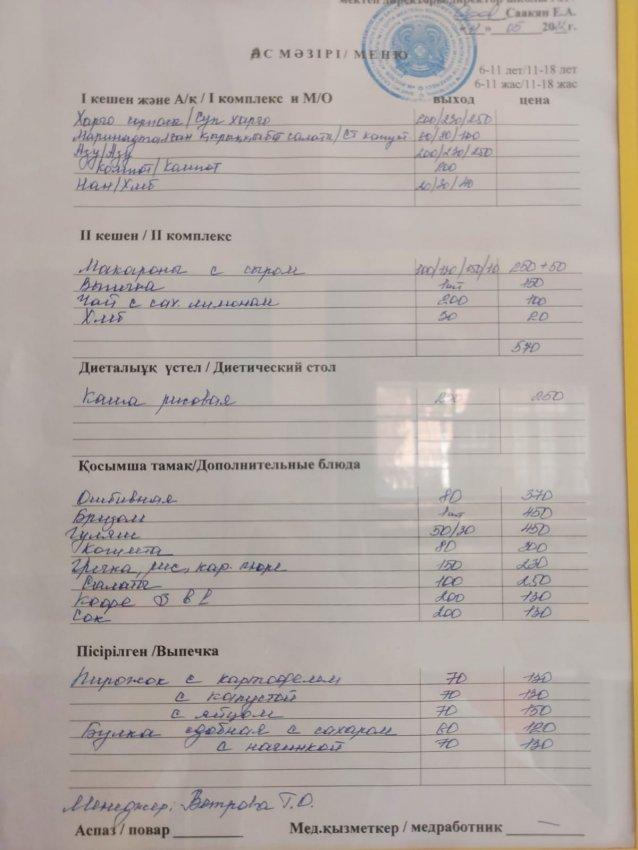 мектеп директоры/директор школы
Саакян Е.А.
« » 05 20
АС МӘЗІРІ / МЕНЮ
6-11 лет/11-18 лет
6-11 жас/11-18 жас
І кешен және А/қ / І комплекс и М/О выход цена
Харчо көрпесі/Суп харчо 200/250/250
салаты/ 80/80/100
Азу/Азу 200/230/250
Компот/Компот 200
Нан/Хлеб 20/30/40
ІІ кешен / ІІ комплекс
Макароны с сыром 250+50
Выпечка 1шт 150
Чай с сах. лимоном 200 100
Хлеб 30 20
570
Диеталық үстел / Диетический стол
Каша рисовая 250
Қосымша тамақ/Дополнительные блюда
Отбивная 80 370
Бризоль 1шт 450
Гуляш 50/30 450
Котлета 80 300
Гречка, рис, кар. пюре 150 230
Салаты 100 250
Кофе 3 в 1 200 130
Сок 200 130
Пісірілген /Выпечка
Пирожок с картофелем 70 130
с капустой 70 130
с яйцом 70 150
Булка сдобная с сахаром 60 120
с начинкой 70 130
Менеджер: Ветрова Т.О.
Аспаз / повар Мед.қызметкер / медработник